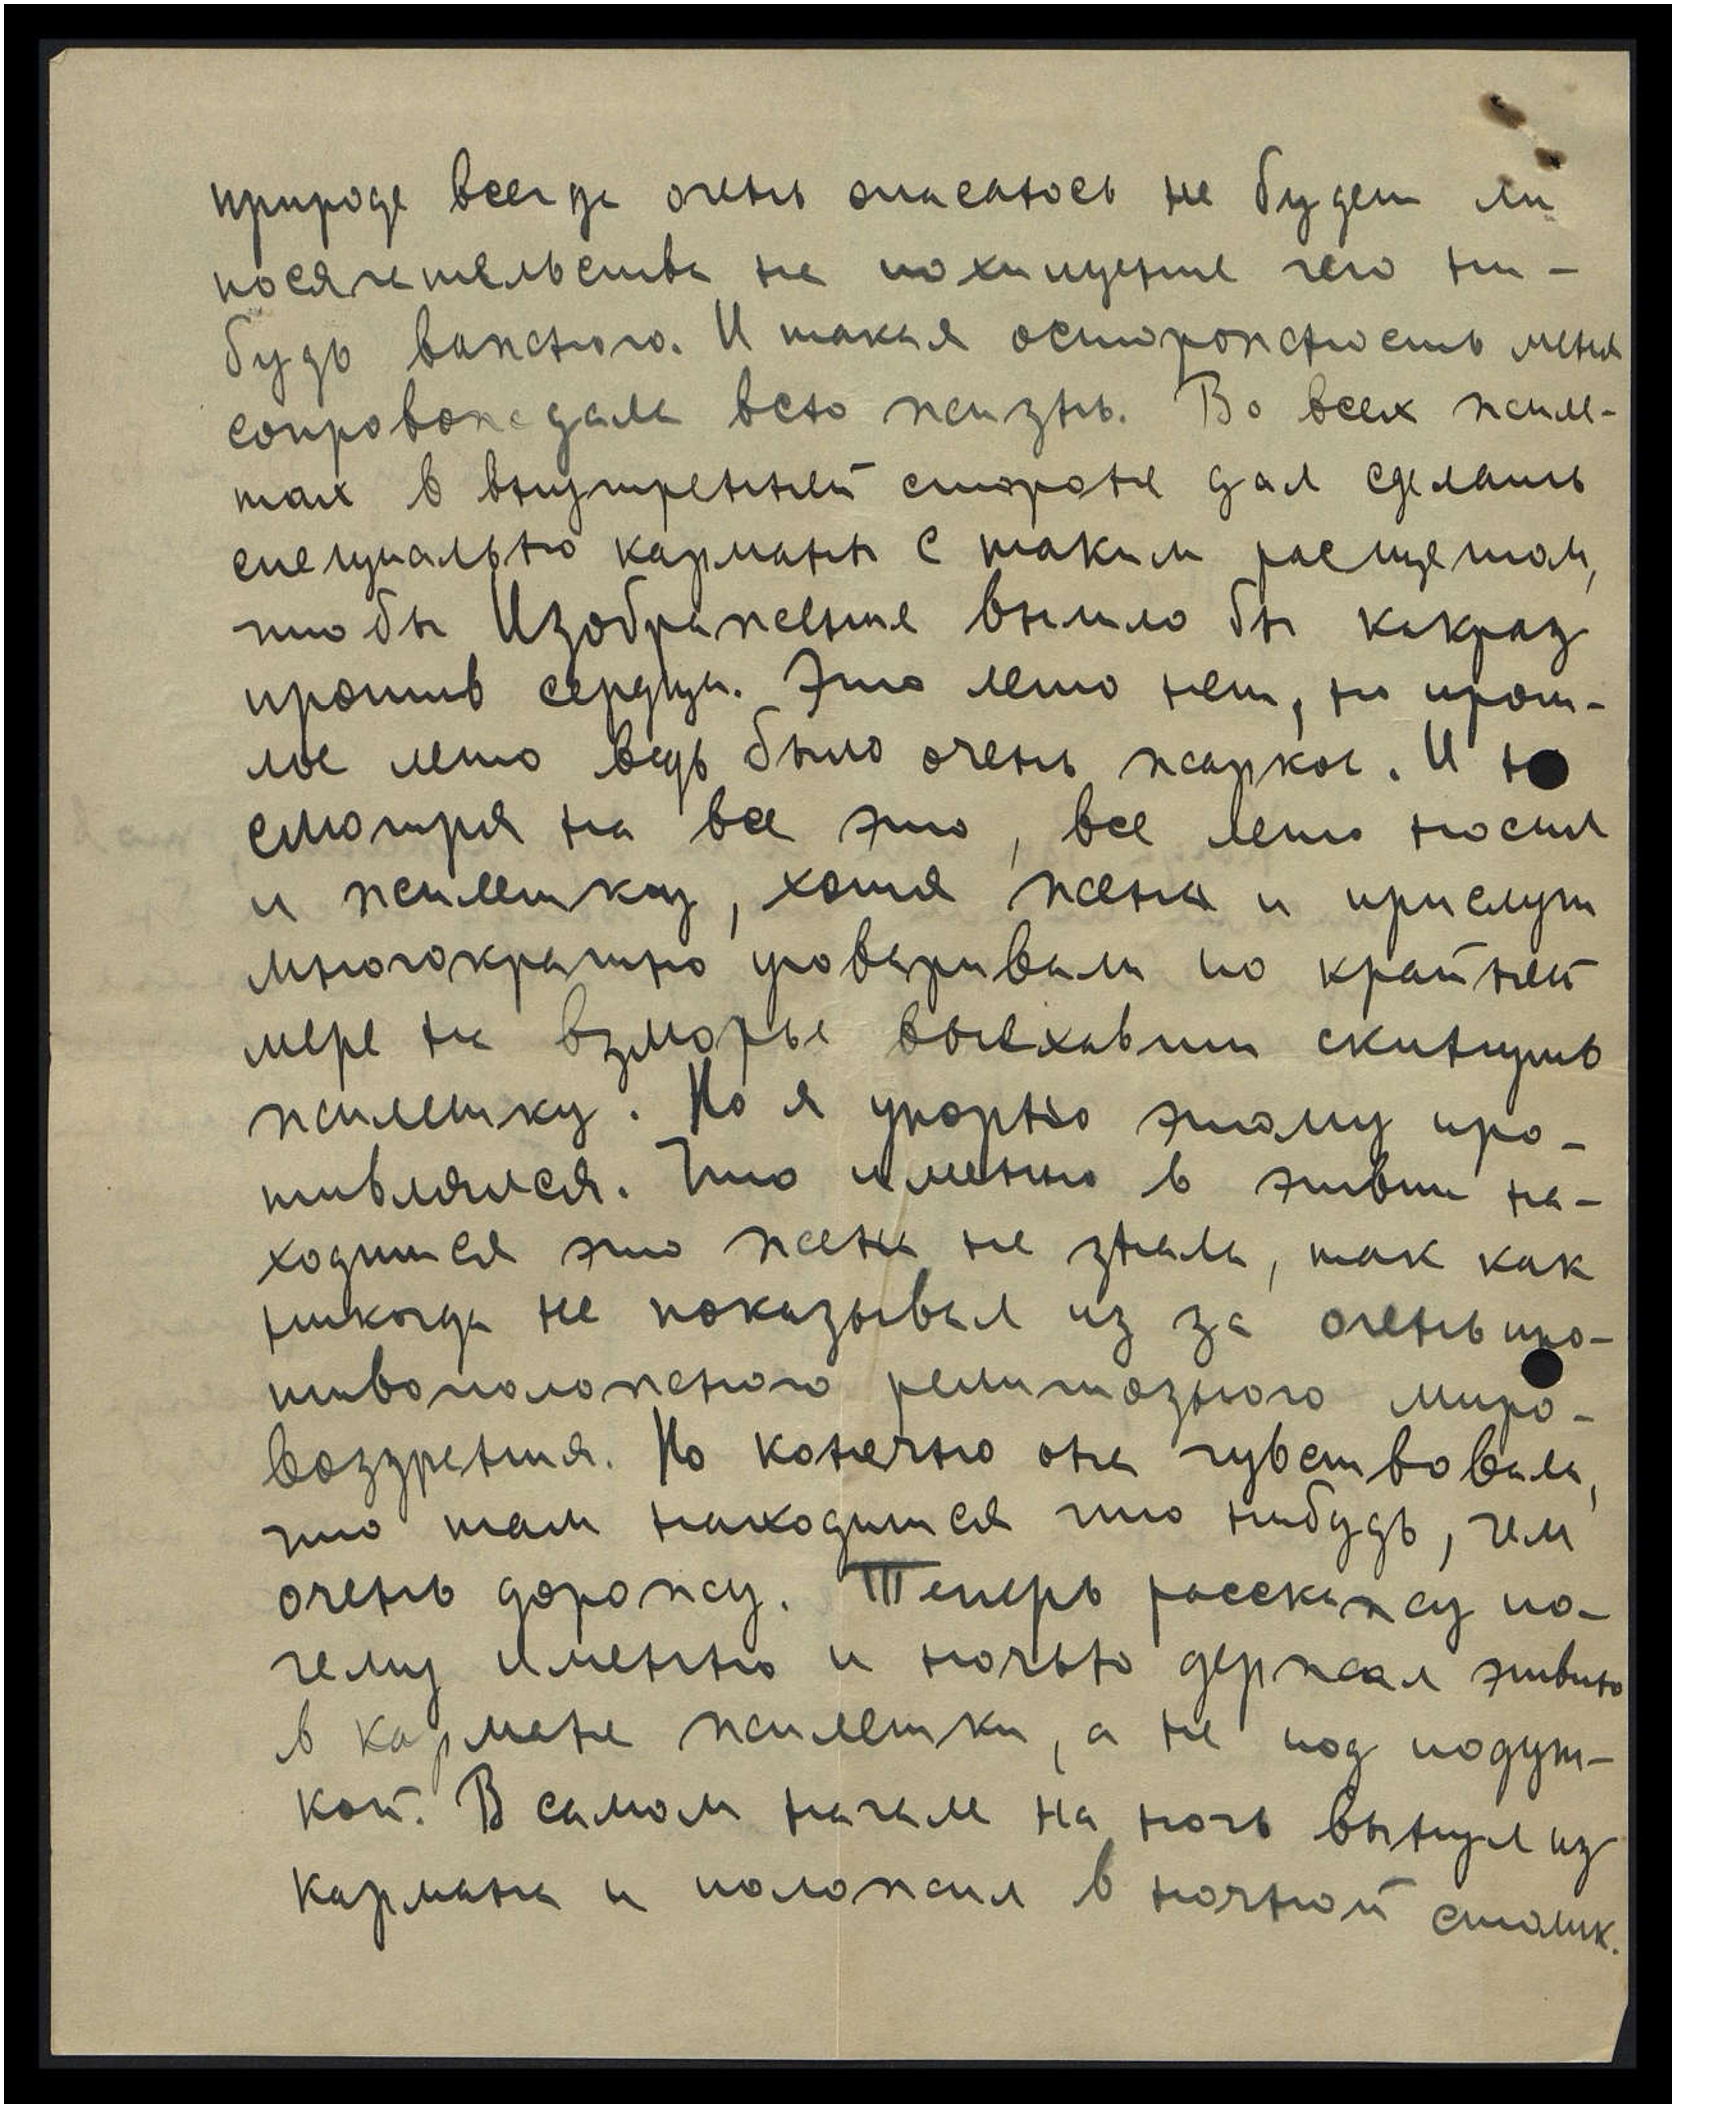 природе всегда очень опасаюсь не будет ли
посягательства на похищение чего ни-
будь важного. И такая осторожность меня
сопровождала всю жизнь. Во всех жиле-
тах в внутренней стороне дал сделать
специально карманы с таким расщетом,
чтобы Изображение было бы какраз
против сердца. Это лето нет, но прош-
лое лето ведь было очень жаркое. И не
смотря на все это, все лето носил
и жилетку, хотя жена и прислуга
многократно уговаривали по крайней
мере на взморье выехавши скинуть
жилетку. Но я упорно этому про-
тивлялся. Что именно в этивии на-
ходится это жена не знала, так как
никогда не показывал из за очень про-
тивоположного религиозного миро-
воззрения. Но конечно она чувствовала,
что там находится что нибудь, чем
очень дорожу. Теперь расскажу по-
чему именно и ночью держал этивию
в кармане жилетки, а не под подуш-
кой. В самом начале на ночь вынул из
кармана и положил в ночной столик.